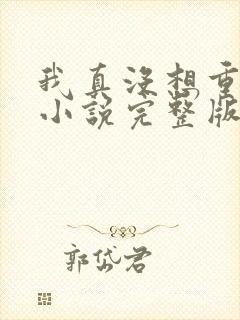 我真没想重
小说完整版
郭岱君